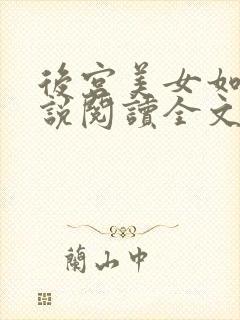 後宮美女如
說閱讀全文
蘭山中